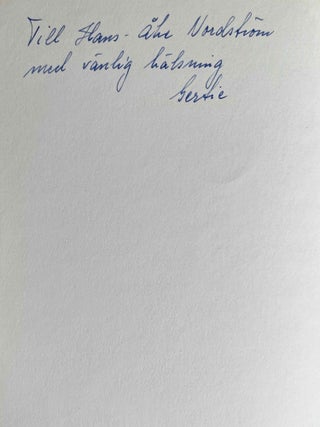 Till Hans-Åke Nordström
med vänlig hälsning
Gertie